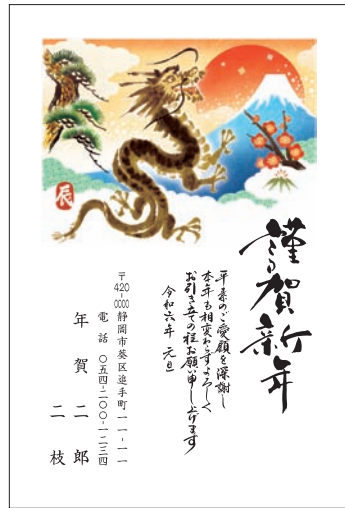 辰
謹賀新年
平素のご愛顧を深謝し
本年も相変わらずよろしく
お引き立ての程お願い申し上げます
令和六年 元旦
〒420-0000 静岡市葵区追手町一一-一一
電話 〇五四-二〇〇-一二三四
年賀二郎
二枝